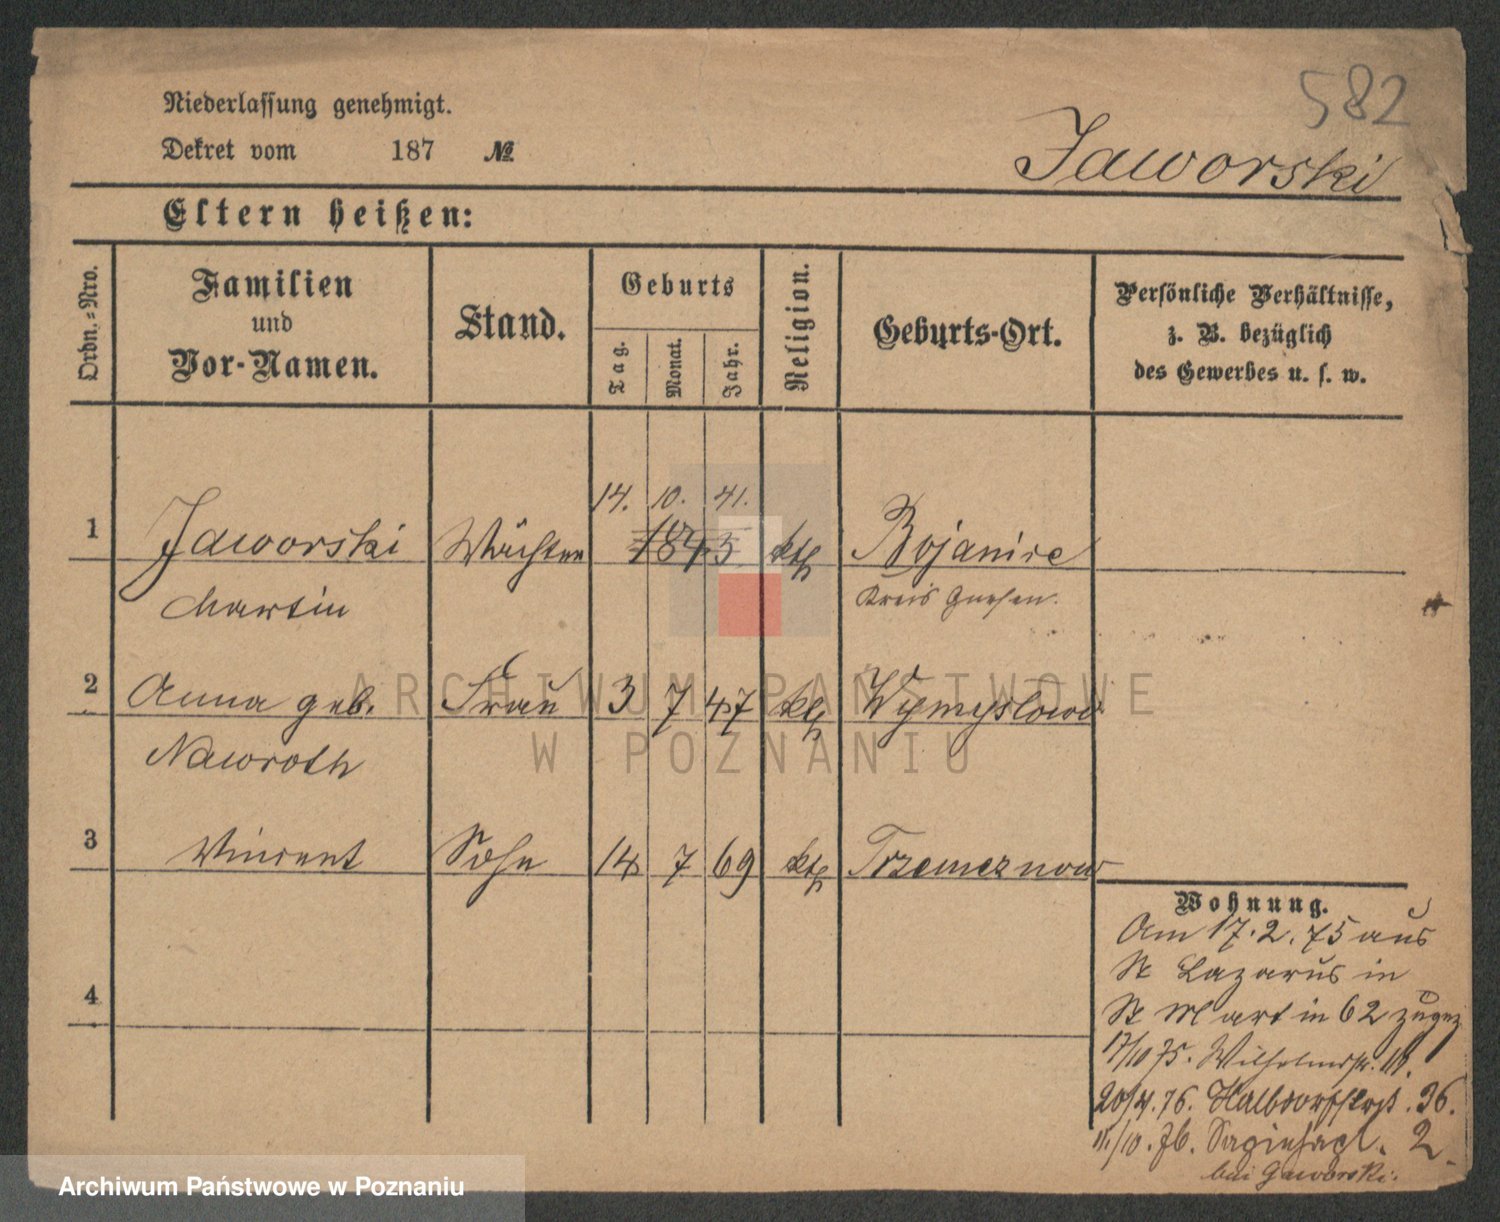 582
Niederlassung genehmigt.
Dekret vom 187 №
Jaworski
Eltern heißen:
Ordn.-Nro.
Familien und Vor-Namen.
Stand.
Geburts
Tag.
Monat.
Jahr.
Religion.
Geburts-Ort.
Persönliche Verhältnisse,
z. B. bezüglich
des Gewerbes u. s. w.
14. 10. 41.
1 Jaworski Wächter 1843 kth Bojanice
Martin Kreis Gnesen.
2 Anna geb. Frau 3 7 47 kth Wymyslowo
Nawroth
3 Vincent Sohn 14 7 69 kth Trzemeznow
4
Wohnung.
Am 17.2.75 aus
St Lazarus in
St Martin 62 zugez
17/10 75. Wilhelmsstr.
20/4.76. Halbdorfstr. 36.
11./10.76. 2.
bei Jaworski.
ARCHIWUM PAŃSTWOWE
W POZNANIU
Archiwum Państwowe w Poznaniu